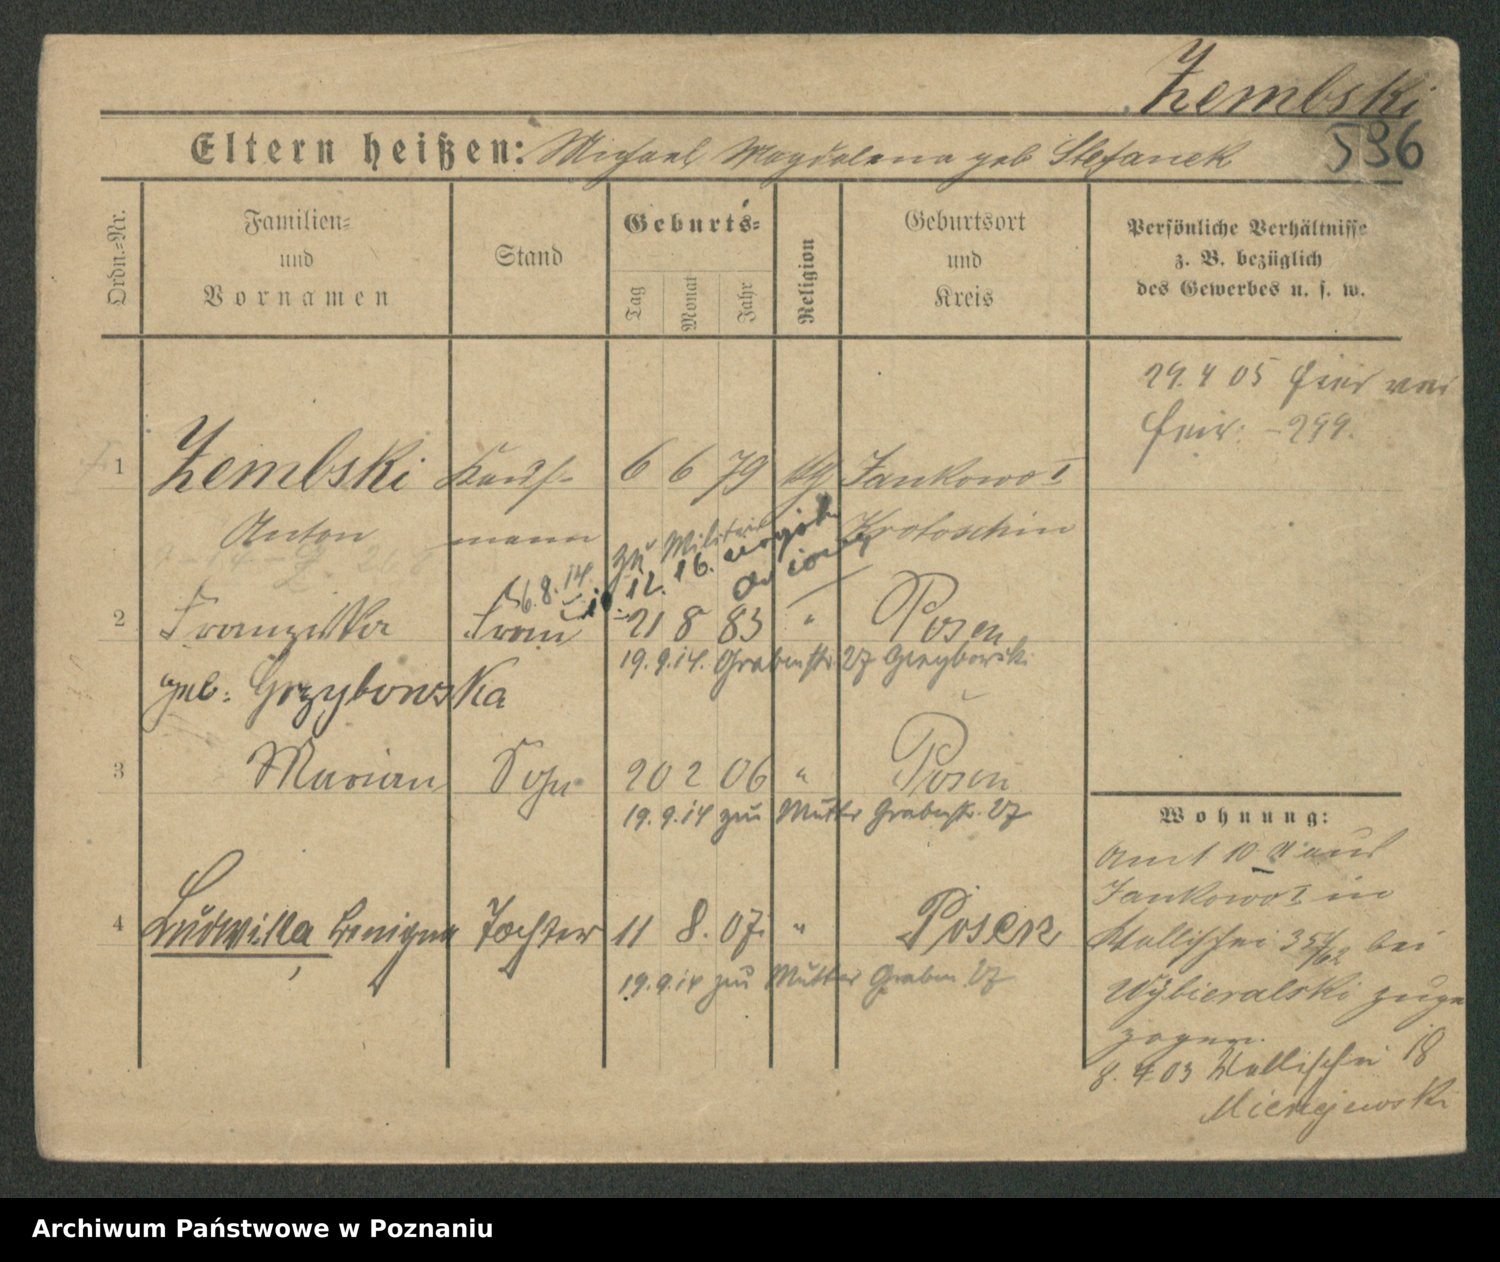 Zembski
536
Eltern heißen: Michael Magdalena geb Stefanek
Ordn.-Nr.
Familien- und Vornamen
Stand
Geburts-
Tag Monat Jahr
Religion
Geburtsort und Kreis
Persönliche Verhältnisse
z. B. bezüglich
des Gewerbes u. s. w.
29. 4 05 hier
299.
1 Zembski Kauf- 6 6 79 kg Jankowo I
Anton mann Krotoschin
zu Militär
6.8.14. 12. 16.
2 Franziska Frau 21 8 83 " Posen
19.9.14. Grabenstr. 27 Grzybowski
geb. Grzybowska
3 Marian Sohn 20 2 06 " Posen
19.9.14 zur Mutter Grabenstr. 27
4 Ludwika Benigna Tochter 11 8. 07 " Posen
19.9.14 zur Mutter Graben 27
Wohnung:
Amt 10 aus
Jankowo I in
Wallischei 35 bei
Wybieralski zuge
zogen.
8. 4 03 Wallischei 18